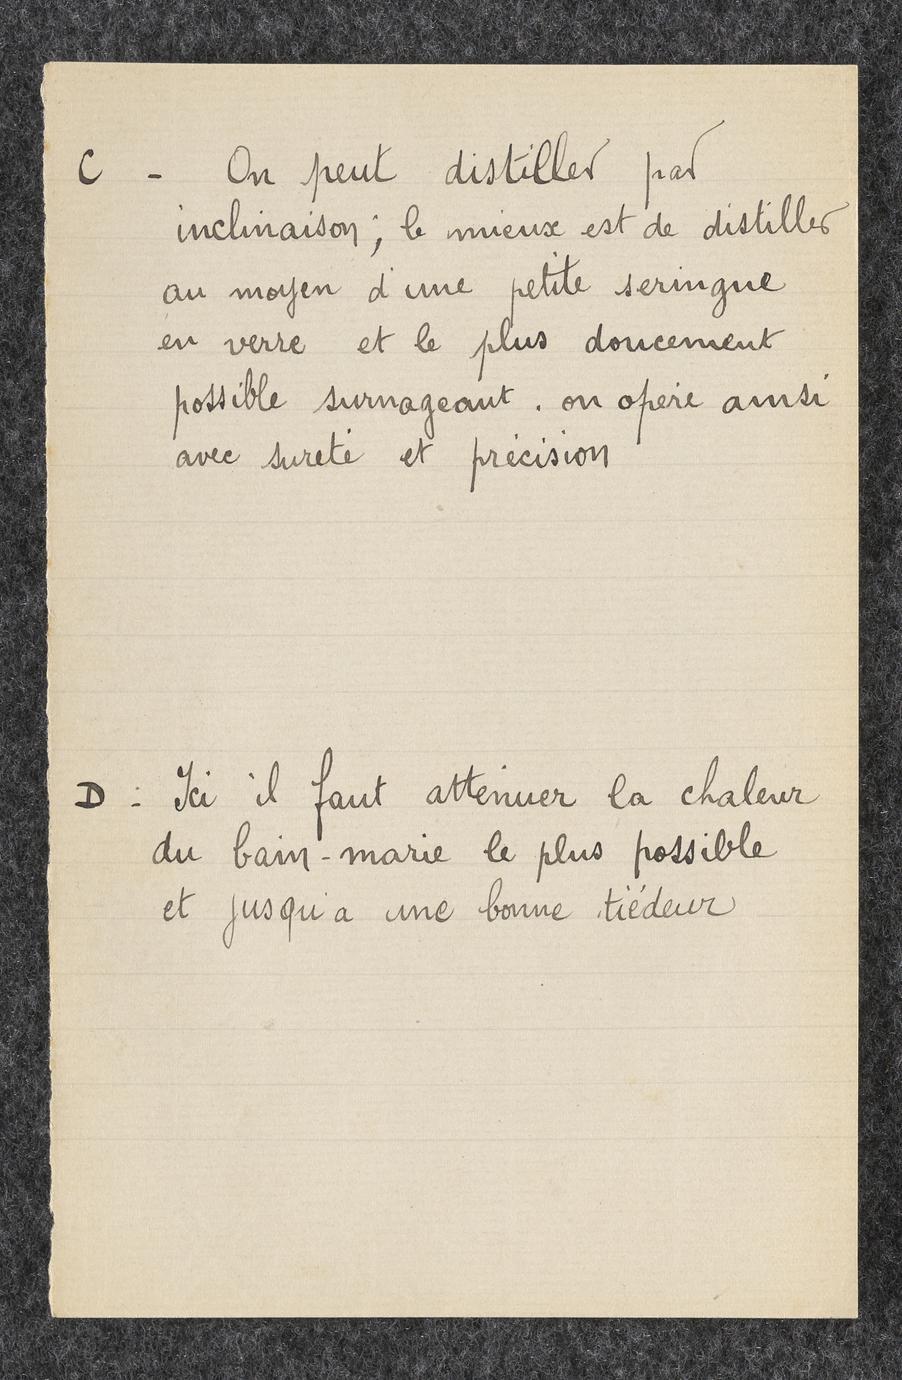 C - On peut distiller par
inclinaison ; le mieux est de distiller
au moyen d'une petite seringue
en verre et le plus doucement
possible surnageant. on opère ainsi
avec sureté et précision
D - Ici il faut atténuer la chaleur
du bain-marie le plus possible
et jusqu'a une bonne tiédeur